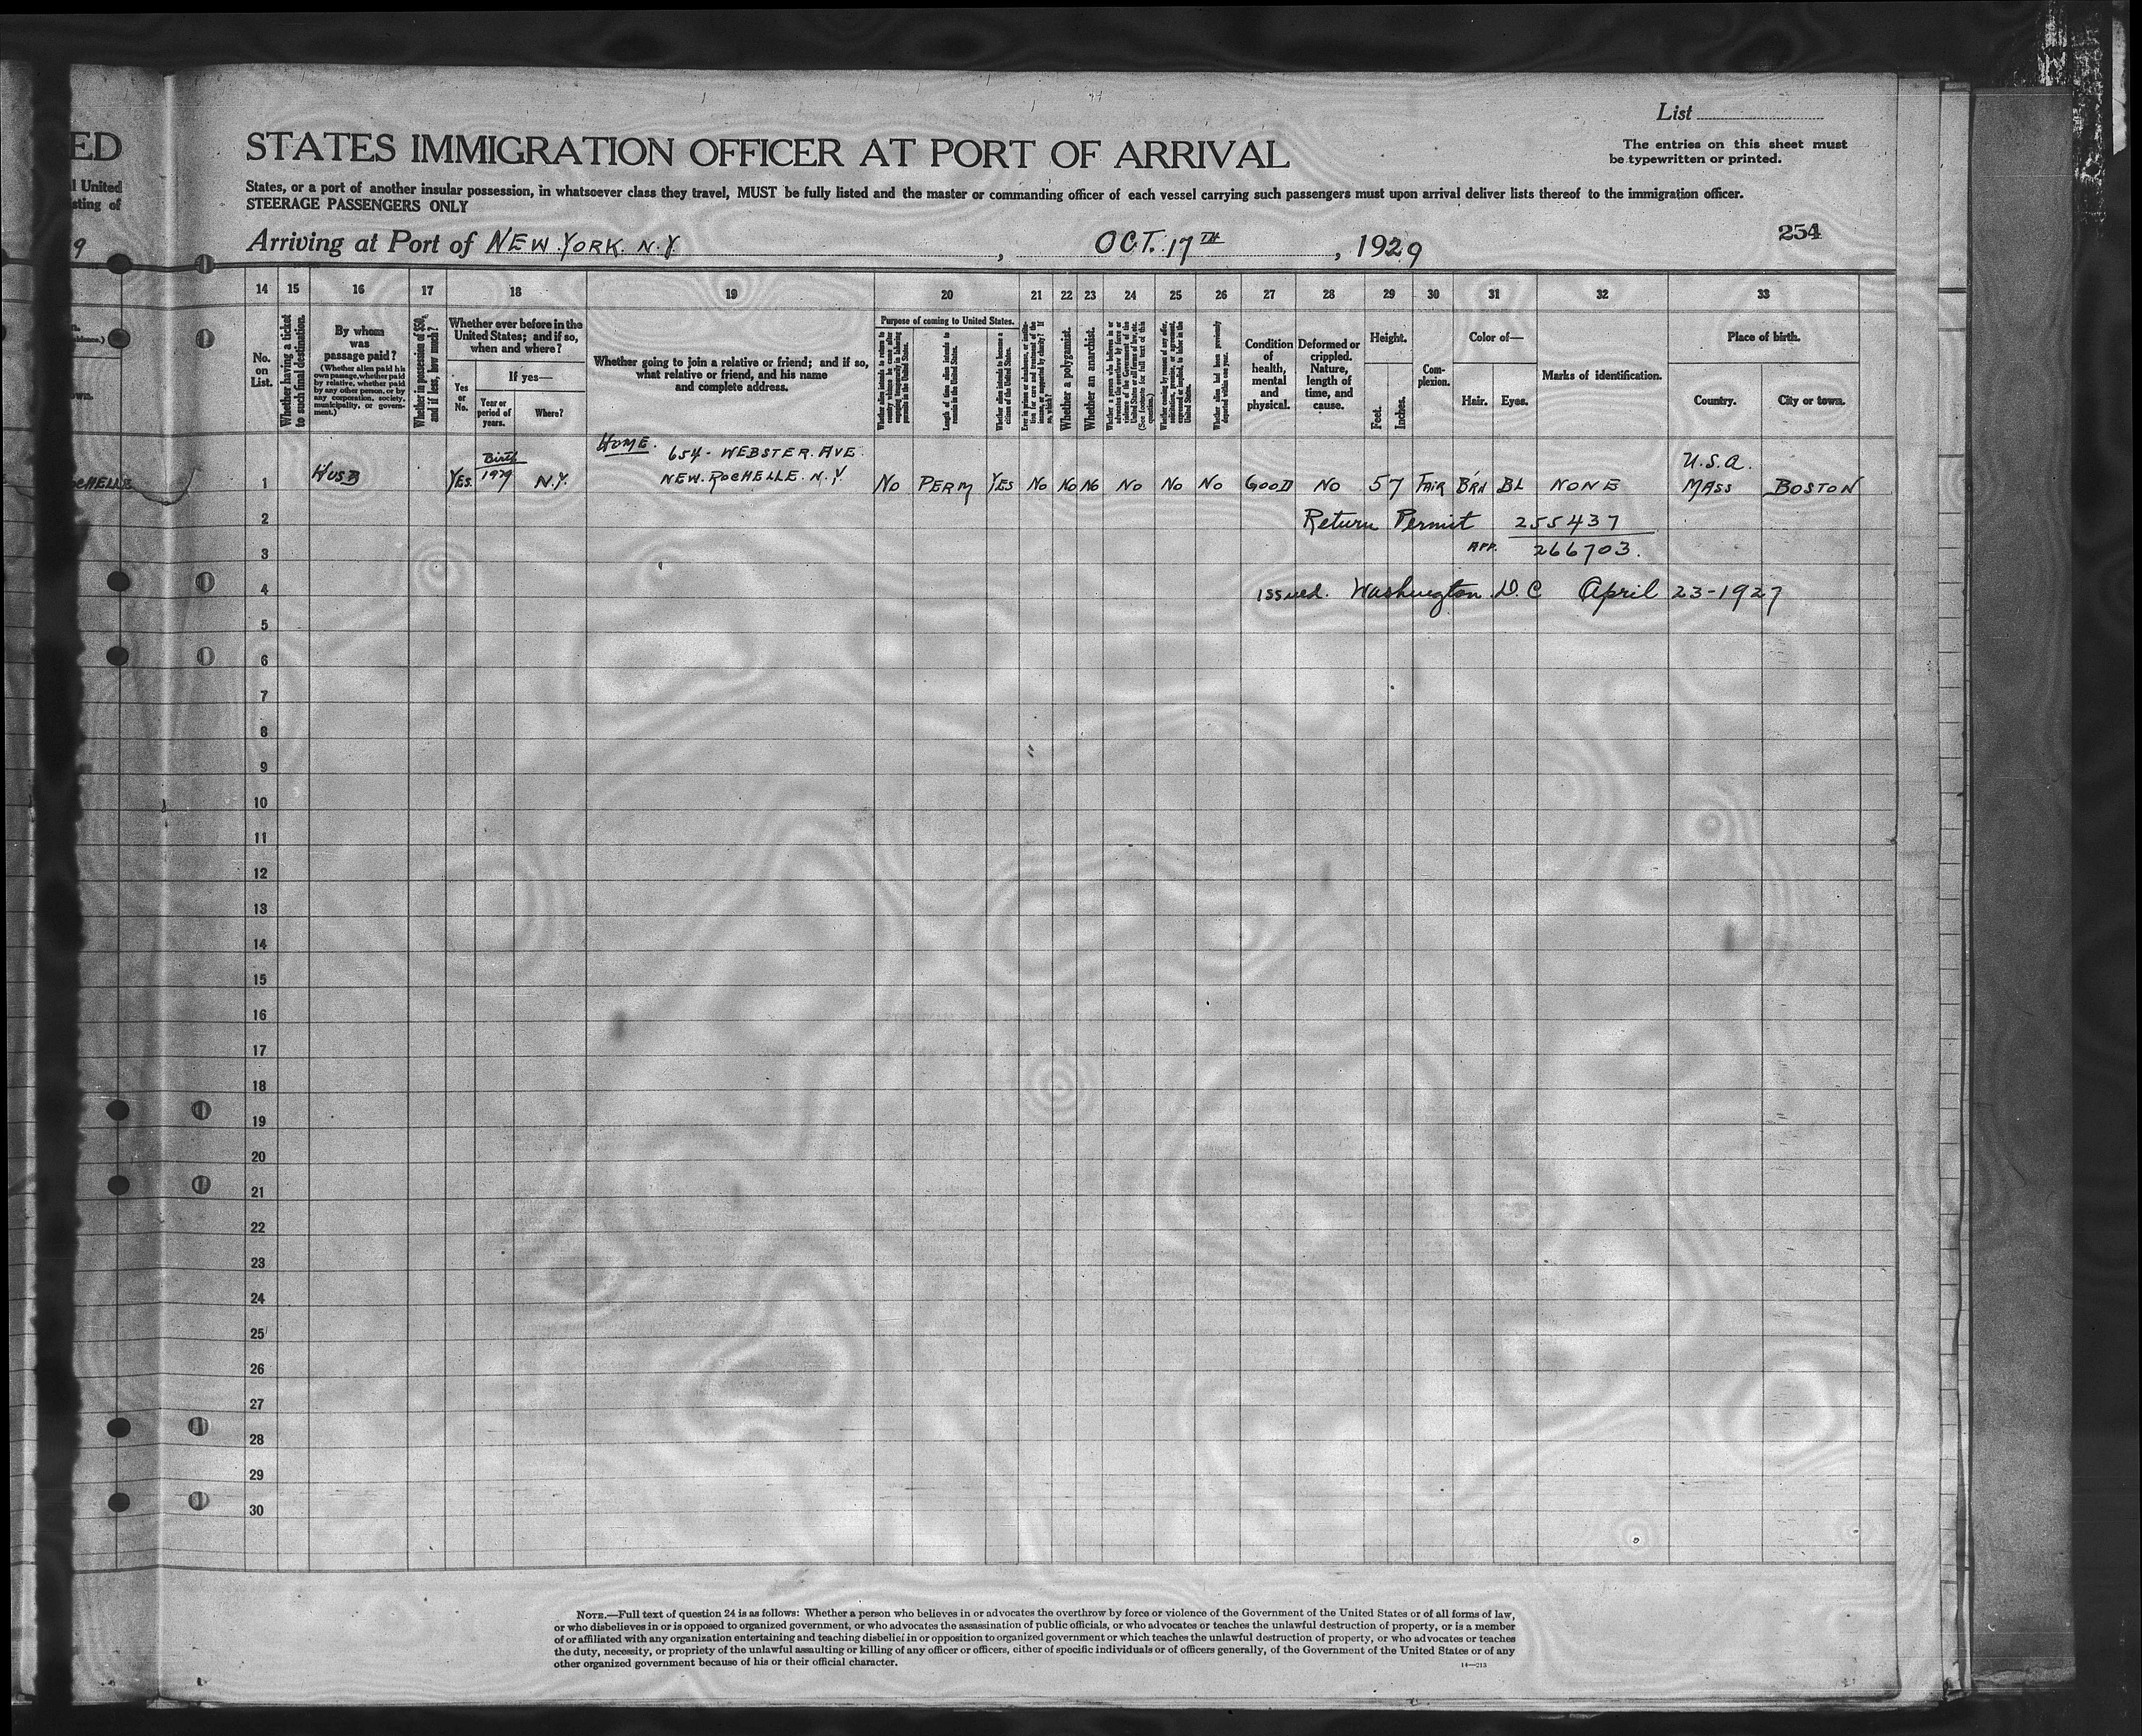 List
STATES IMMIGRATION OFFICER AT PORT OF ARRIVAL
The entries on this sheet must
be typewritten or printed.
ED
l United
sting of
States, or a port of another insular possession, in whatsoever class they travel, MUST be fully listed and the master or commanding officer of each vessel carrying such passengers must upon arrival deliver lists thereof to the immigration officer.
STEERAGE PASSENGERS ONLY
9
Arriving at Port of NEW YORK. N.Y. , OCT. 17TH , 1929
254
14 15 16 17 18 19 20 21 22 23 24 25 26 27 28 29 30 31 32 33
No. on List.
Whether having a ticket to such final destination.
By whom was passage paid?
(Whether alien paid his own passage, whether paid by relative, whether paid by any other person, or by any corporation, society, municipality, or government.)
Whether in possession of $50, and if less, how much?
Whether ever before in the United States; and if so, when and where?
Yes or No.
If yes—
Year or period of years.
Where?
Whether going to join a relative or friend; and if so, what relative or friend, and his name and complete address.
Purpose of coming to United States.
Whether alien intends to return to country whence he came after engaging temporarily in laboring pursuits in the United States.
Length of time alien intends to remain in the United States.
Whether alien intends to become a citizen of the United States.
Whether a polygamist.
Whether an anarchist.
Condition of health, mental and physical.
Deformed or crippled. Nature, length of time, and cause.
Height.
Feet. Inches.
Complexion.
Color of—
Hair. Eyes.
Marks of identification.
Place of birth.
Country. City or town.
HOME. 654 - WEBSTER. AVE.
NEW. ROCHELLE. N.Y.
U.S.A.
Birth
1 HUSB YES. 1929 N.Y. NO PERM YES NO NO NO NO NO NO GOOD NO 5 7 FAIR BRN BL NONE MASS BOSTON
2 Return Permit 255437
3 APP. 266703.
4 issued. Washington. D.C April 23-1927
5
6
7
8
9
10
11
12
13
14
15
16
17
18
19
20
21
22
23
24
25
26
27
28
29
30
NOTE.—Full text of question 24 is as follows: Whether a person who believes in or advocates the overthrow by force or violence of the Government of the United States or of all forms of law,
or who disbelieves in or is opposed to organized government, or who advocates the assassination of public officials, or who advocates or teaches the unlawful destruction of property, or is a member
of or affiliated with any organization entertaining and teaching disbelief in or opposition to organized government or which teaches the unlawful destruction of property, or who advocates or teaches
the duty, necessity, or propriety of the unlawful assaulting or killing of any officer or officers, either of specific individuals or of officers generally, of the Government of the United States or of any
other organized government because of his or their official character.
14—213